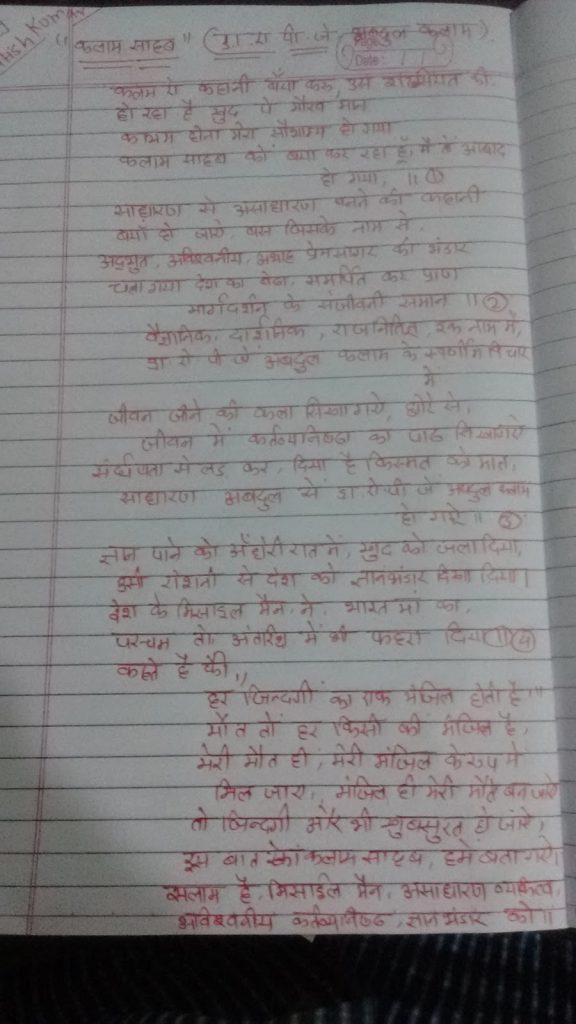 ish Kumar
"कलाम साहब" (डा. ए पी. जे अब्दुल कलाम)
Date:
कलम ऐ कहानी बँया करु, उस शख्सियत की
हो रहा है खुद पे गौरव मान
कलाम होना मेरा सौभाग्य हो गया
कलाम साहब को बया कर रहा हूँ, मै तो आबाद
हो गया, ॥ ①
साधारण से असाधारण बनने की कहानी
बयाँ हो जाये, बस जिसके नाम से,
अदभुत, अविश्वनीय, अथाह प्रेमसागर का भंडार
चला गया देश का बेटा, समर्पित कर प्राण
मार्गदर्शन के संजीवनी समान ॥ ②
वैज्ञानिक, दार्शनिक, राजनितिज्ञ, एक नाम में,
डा. ऐ पी जे अबदुल कलाम के स्वर्णीम विचार
में
जीवन जीने की कला सिखा गये, छोटे से,
जीवन में कर्तव्यनिष्ठा का पाठ सिखागये
संर्घषता से लड़ कर, दिया है किस्मत को मात,
साधारण अबदुल से डा ऐ पी जे अब्दुल कलाम
हो गये ॥ ③
ज्ञान पाने को अँधेरी रात में, खुद को जला दिया,
उसी रोशनी से देश को ज्ञानभंडार दिखा दिया।
देश के मिसाईल मैन ने, भारत माँ का,
परचम तो अंतरिक्ष में भी फहरा दिया ॥ ④
कहते है की,,
हर जिन्दगी का एक मंजिल होती है"
मौत तो हर किसी की मंजिल है,
मेरी मौत ही, मेरी मंजिल के रुप में
मिल जाए, मंजिल ही मेरी मौत बन जाये
तो जिन्दगी और भी खुबसुरत हो जाये,
इस बात को कलाम साहब, हमे बता गये।
सलाम है, मिसाईल मैन, असाधारण व्यक्तित्व,
अविश्वनीय कर्तव्यनिष्ठ, ज्ञान भंडार को ॥